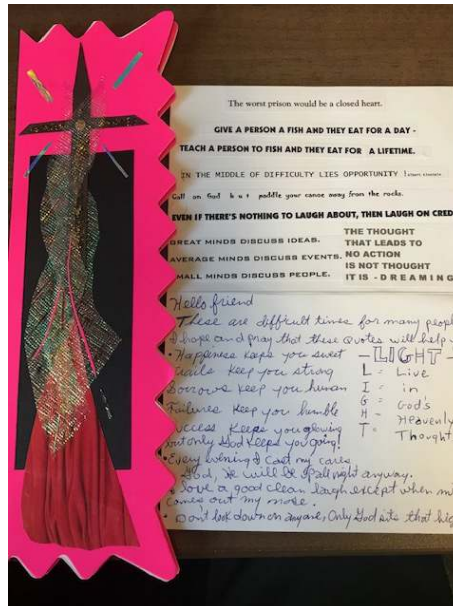 The worst prison would be a closed heart.
GIVE A PERSON A FISH AND THEY EAT FOR A DAY -
TEACH A PERSON TO FISH AND THEY EAT FOR A LIFETIME.
IN THE MIDDLE OF DIFFICULTY LIES OPPORTUNITY !
Call on God but paddle your canoe away from the rocks.
EVEN IF THERE'S NOTHING TO LAUGH ABOUT, THEN LAUGH ON CRED
GREAT MINDS DISCUSS IDEAS.
AVERAGE MINDS DISCUSS EVENTS.
SMALL MINDS DISCUSS PEOPLE.
THE THOUGHT
THAT LEADS TO
NO ACTION
IS NOT THOUGHT
IT IS - DREAMING
Hello friend
These are difficult times for many peopl
I hope and pray that these quotes will help
• Happiness keeps you sweet
Trials keep you strong
Sorrows keep you human
Failures keep you humble
Success keeps you glowing
but only God keeps you going!
- LIGHT -
L = Live
I = in
G = God's
H = Heavenly
T = Thought
• Every evening I cast my cares
God, He will be up all night anyway.
love a good clean laugh except when mi
comes out my nose.
• Don't look down on anyone, Only God sits that hig